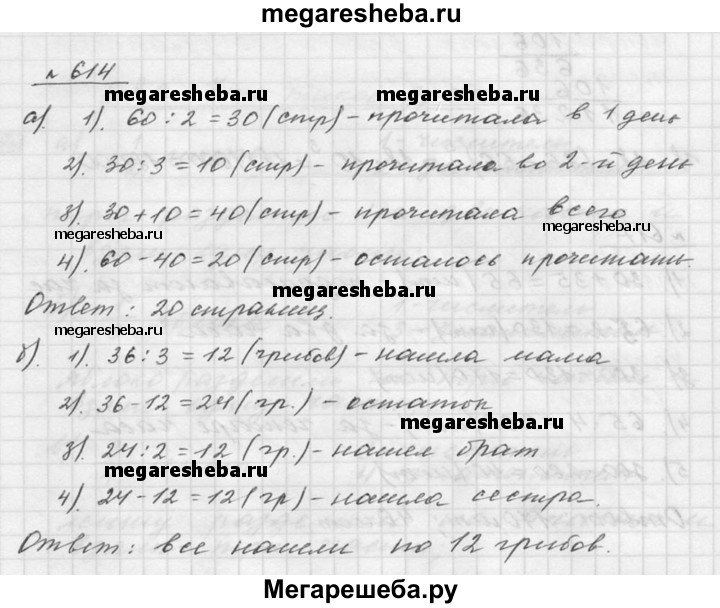 megaresheba.ru
№ 614
megaresheba.ru megaresheba.ru
а). 1). 60 : 2 = 30 (стр) – прочитала в 1 день
2). 30 : 3 = 10 (стр) – прочитала во 2-й день
3). 30 + 10 = 40 (стр) – прочитала всего
megaresheba.ru megaresheba.ru
4). 60 – 40 = 20 (стр) – осталось прочитать.
megaresheba.ru
Ответ : 20 страниц.
megaresheba.ru
б). 1). 36 : 3 = 12 (грибов) – нашла мама
megaresheba.ru
2). 36 – 12 = 24 (гр.) – остаток
megaresheba.ru
3). 24 : 2 = 12 (гр.) – нашел брат
megaresheba.ru megaresheba.ru
4). 24 – 12 = 12 (гр) – нашла сестра.
megaresheba.ru
Ответ : все нашли по 12 грибов.
Мегарешеба.ру